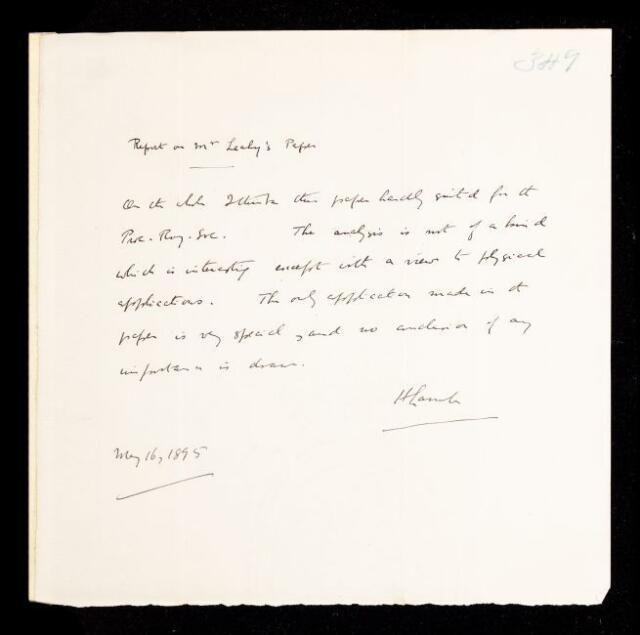 349
Report on Mr Leahy's Paper
On the whole I think this paper hardly suited for the
Proc. Roy. Soc. The analysis is not of a kind
which is interesting except with a view to physical
applications. The only application made in the
paper is very special, and no conclusion of any
importance is drawn.
H Lamb
May 16, 1895